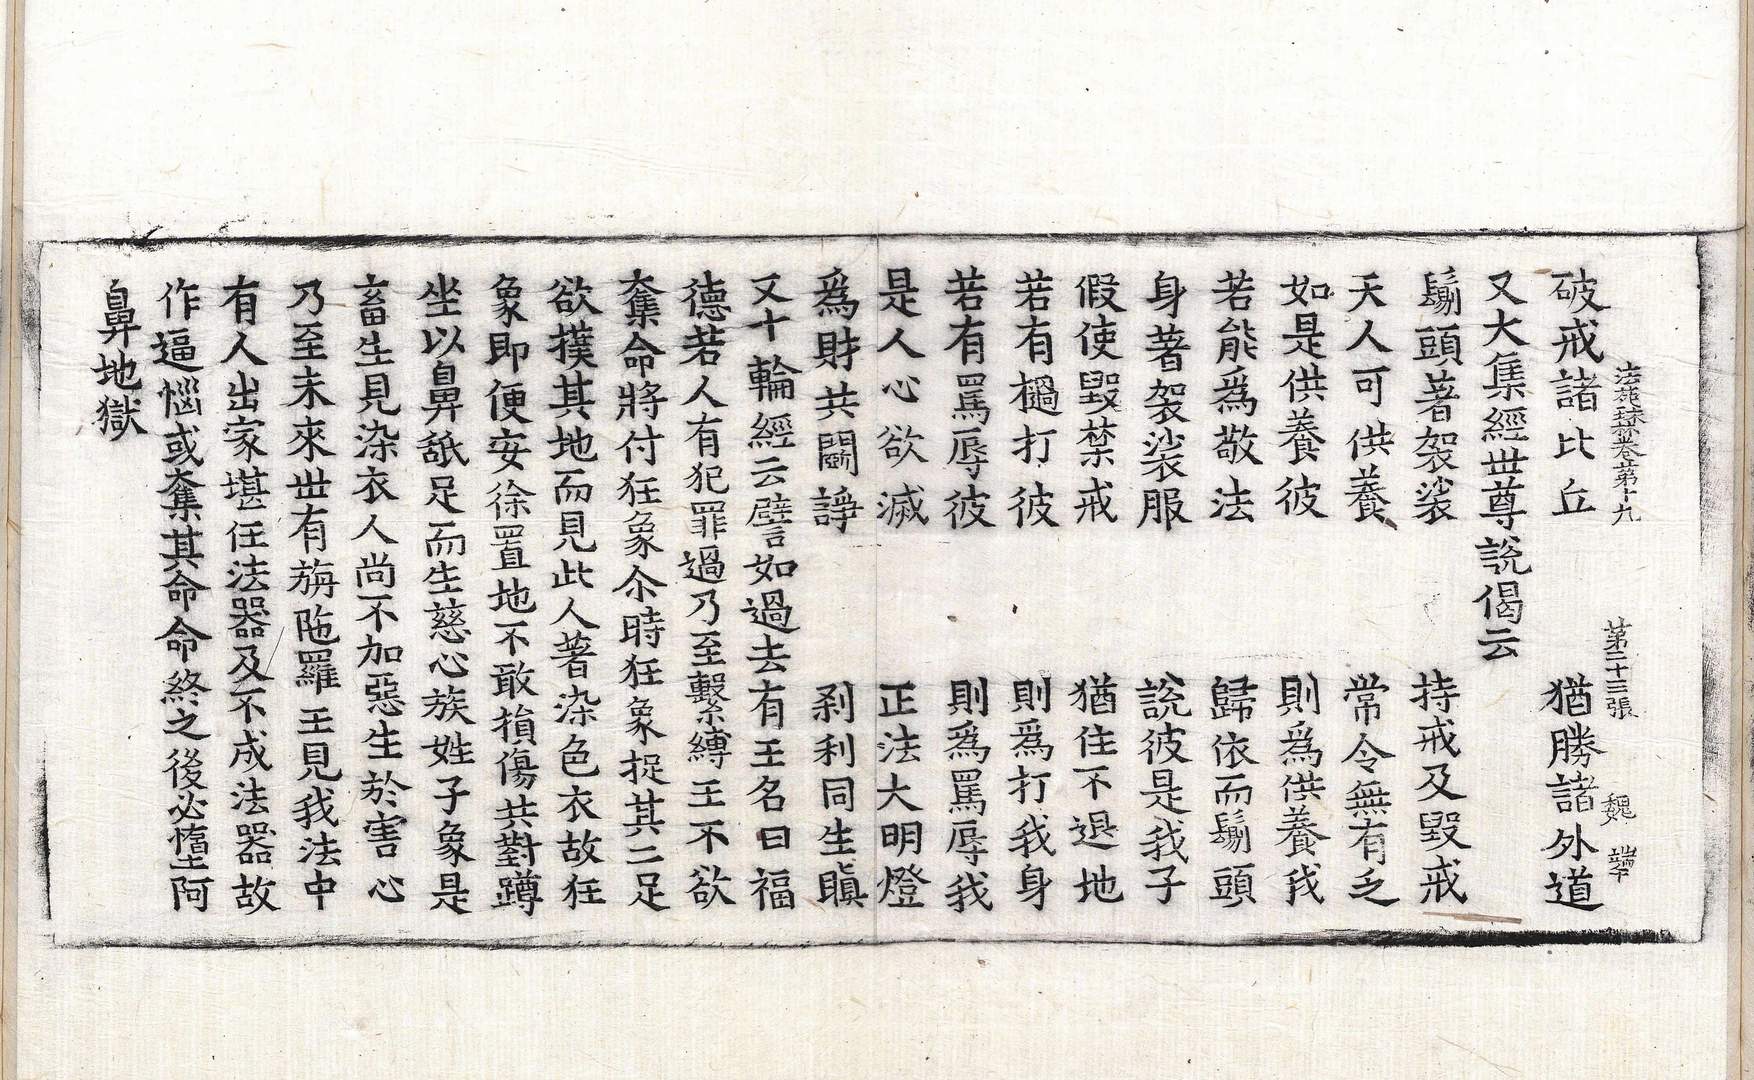 法苑珠林卷第十九 第二十三張 魏 端
破戒諸比丘 猶勝諸外道
又大集經世尊說偈云
鬀頭著袈裟 持戒及毀戒
天人可供養 常令無有乏
如是供養彼 則爲供養我
若能爲敬法 歸依而鬀頭
身著袈裟服 說彼是我子
假使毀禁戒 猶住不退地
若有檛打彼 則爲打我身
若有罵辱彼 則爲罵辱我
是人心欲滅 正法大明燈
爲財共鬪諍 刹利同生瞋
又十輪經云譬如過去有王名曰福
德若人有犯罪過乃至繫縛王不欲
奪命將付狂象尒時狂象捉其二足
欲撲其地而見此人著染色衣故狂
象即便安徐置地不敢損傷共對蹲
坐以鼻舐足而生慈心族姓子象是
畜生見染衣人尚不加惡生於害心
乃至未來世有旃陁羅王見我法中
有人出家堪任法器及不成法器故
作逼惱或奪其命命終之後必墮阿
鼻地獄